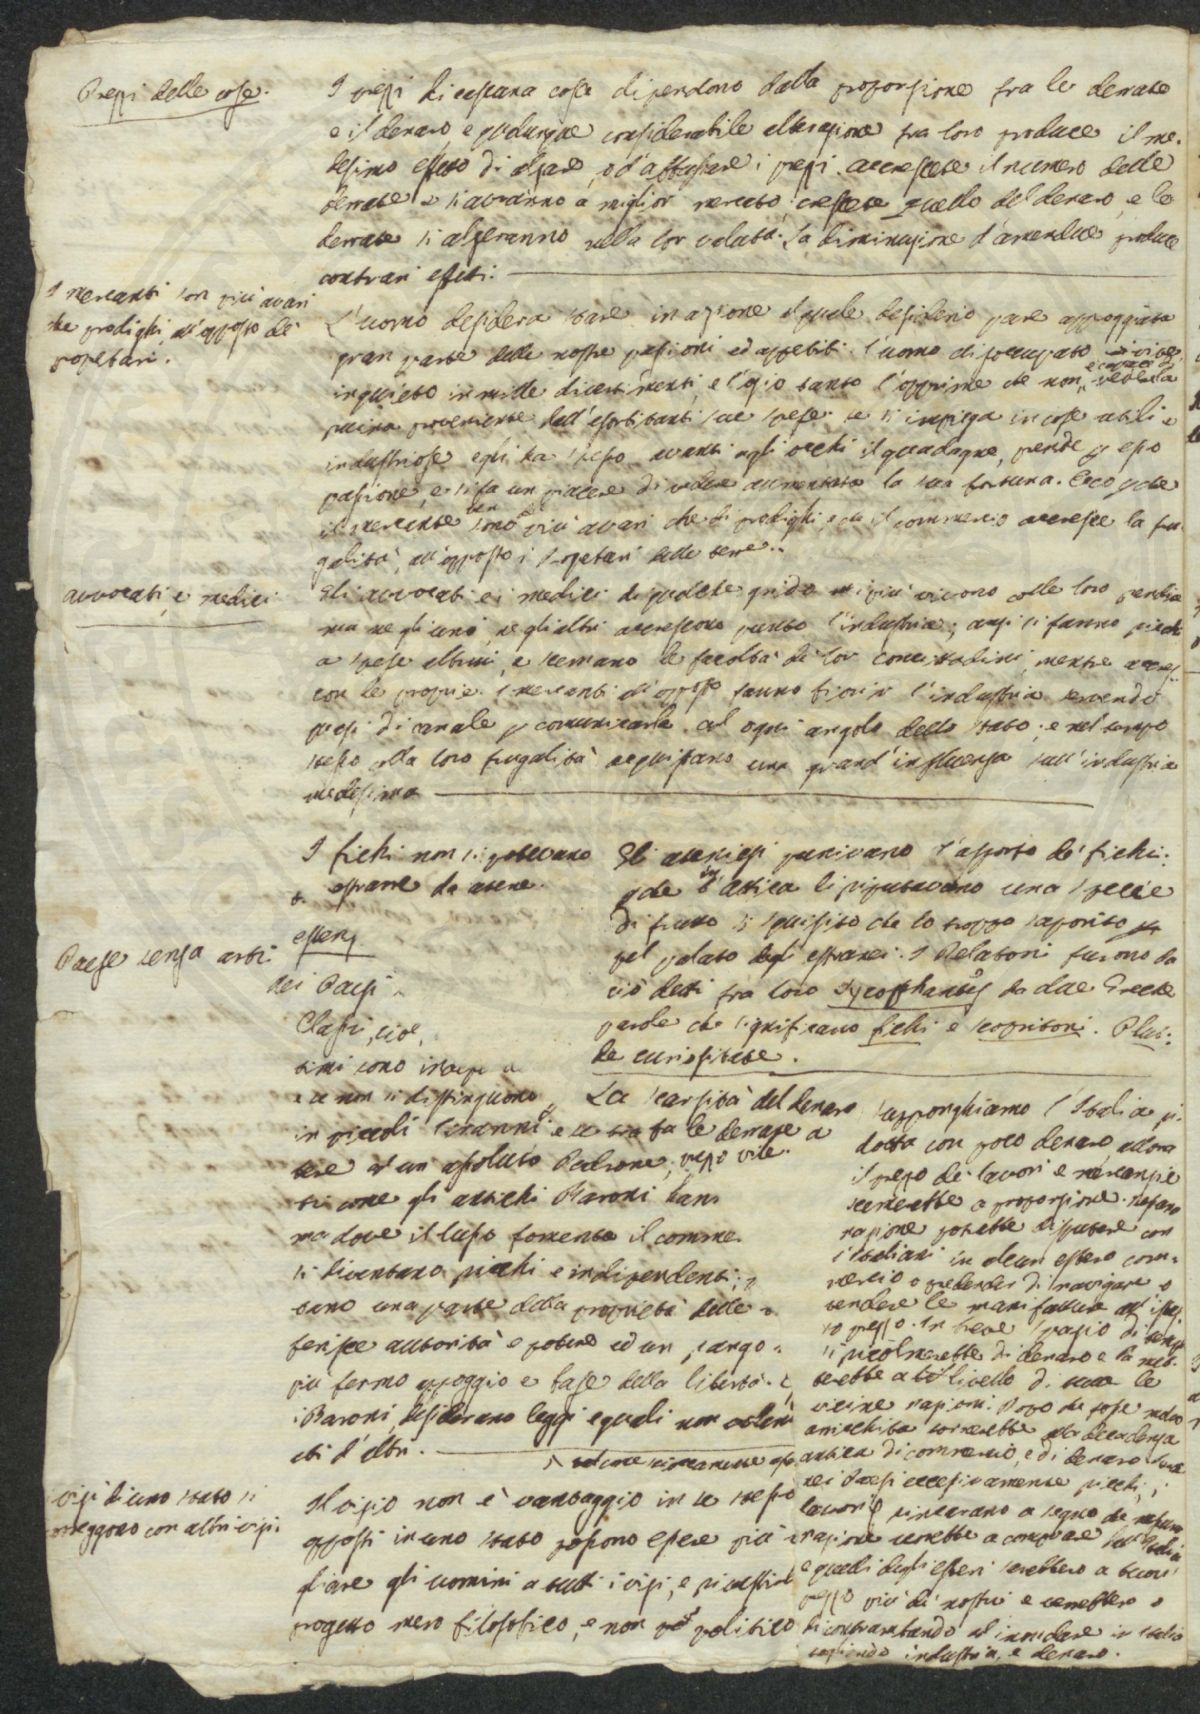 Prezzi delle cose.
I prezzi di ciascuna cosa dipendono dalla proporzione fra le derrate
e il denaro e qualunque considerabile alterazione fra loro produce il me-
desimo effetto di alzare, o d'abbassare i prezzi. accrescete il numero delle
derrate e si avranno a miglior mercato; crescete quello del denaro, e le
derrate si alzeranno nella lor valuta. La diminuzione d'amendue produce
contrari effetti.
I mercanti son più avari
che prodighi, all'opposto de'
propetari.
L'uomo desidera stare in azione il quale desiderio pare appoggiata
gran parte delle nostre passioni ed appetiti. l'uomo disoccupato
inquieto in mille divertimenti, e l'ozio tanto l'opprime che non
ruina proveniente dall'esorbitanti sue spese. se si impiega in cose utili e
industriose egli ha spesso avanti agli occhi il guadagno, prende p esso
passione, e si fa un piacere di vedere aumentata la sua fortuna. Ecco pche
il mercante son più avari che di prodighi, e che il commercio accresce la fru-
galità, all'opposto i propetari delle terre.
avvocati, e medici
Gli avvocati e i medici di qualche grido vivono colle loro
ma ne gli uni, ne gli altri accrescono punto l'industria; anzi si fanno ricchi
a spese altrui, e scemano le facoltà de' lor concittadini, mentre accres-
con le proprie. I mercanti all'opposto fanno fiorir l'industria servendo
quasi di canale p comunicarla ad ogni angolo dello stato; e nel tempo
stesso colla loro frugalità acquistano una grand'influenza sull'industria
medesima
I fichi non si potevano
estrarre da atene.
Gli ateniesi punivano l'asporto de' fichi.
pche l'attica li riputavano una specie
di frutto sì squisito che lo troppo saporito
pel palato degli estranei. I Relatori furono da
ciò detti fra loro Sycophantes da due Greche
parole che significano fichi e scopritori. Plut:
de curiositate.
Paese senza arti
dei Paesi
Classi, cioè,
timi sono
e non si distinguono
in piccoli tiranni
tere ad un assoluto Padrone,
ti come gli antichi Baroni
ma dove il lusso fomenta il comme-
si diventano ricchi e indipendenti;
tano una parte della proprietà delle
ferisce autorità e potere ed un rango
più fermo appoggio e base della libertà.
i Baroni, desiderano leggi eguali non
ati d'altri.
La scarsità del denaro
fa le derrate a
prezzo vile.
supponghiamo l'Italia ri-
dotta con poco denaro, allora
il prezzo de' lavori e mercanzie
scemerebbe a proporzione. nessuna
nazione potrebbe disputare con
l'Italiani in alcun estero com-
mercio o pretender di navigare o
vendere le manifatture all'istes-
so prezzo. In breve spazio di tempo
si ricolmerebbe di denaro e
a livello di tutte le
vicine nazioni.
arricchita correrebbe alla decadenza
antica di commercio, e di denaro.
nei Paesi eccessivamente ricchi, i
lavori rincarano a segno che nessuna
nazione verrebbe a comprare
e quelli degli esteri sarebbero a buon
prezzo più de' nostri e verrebbero
di contrabbando ad inondare in Italia
togliendo industria, e denaro.
vizi di uno stato si
correggono con altri vizi.
Il vizio non è vantaggio in se stesso
opposti in uno stato possono essere più
gliare gli uomini a tutti i vizi, e
progetto mero filosofico, e non politico